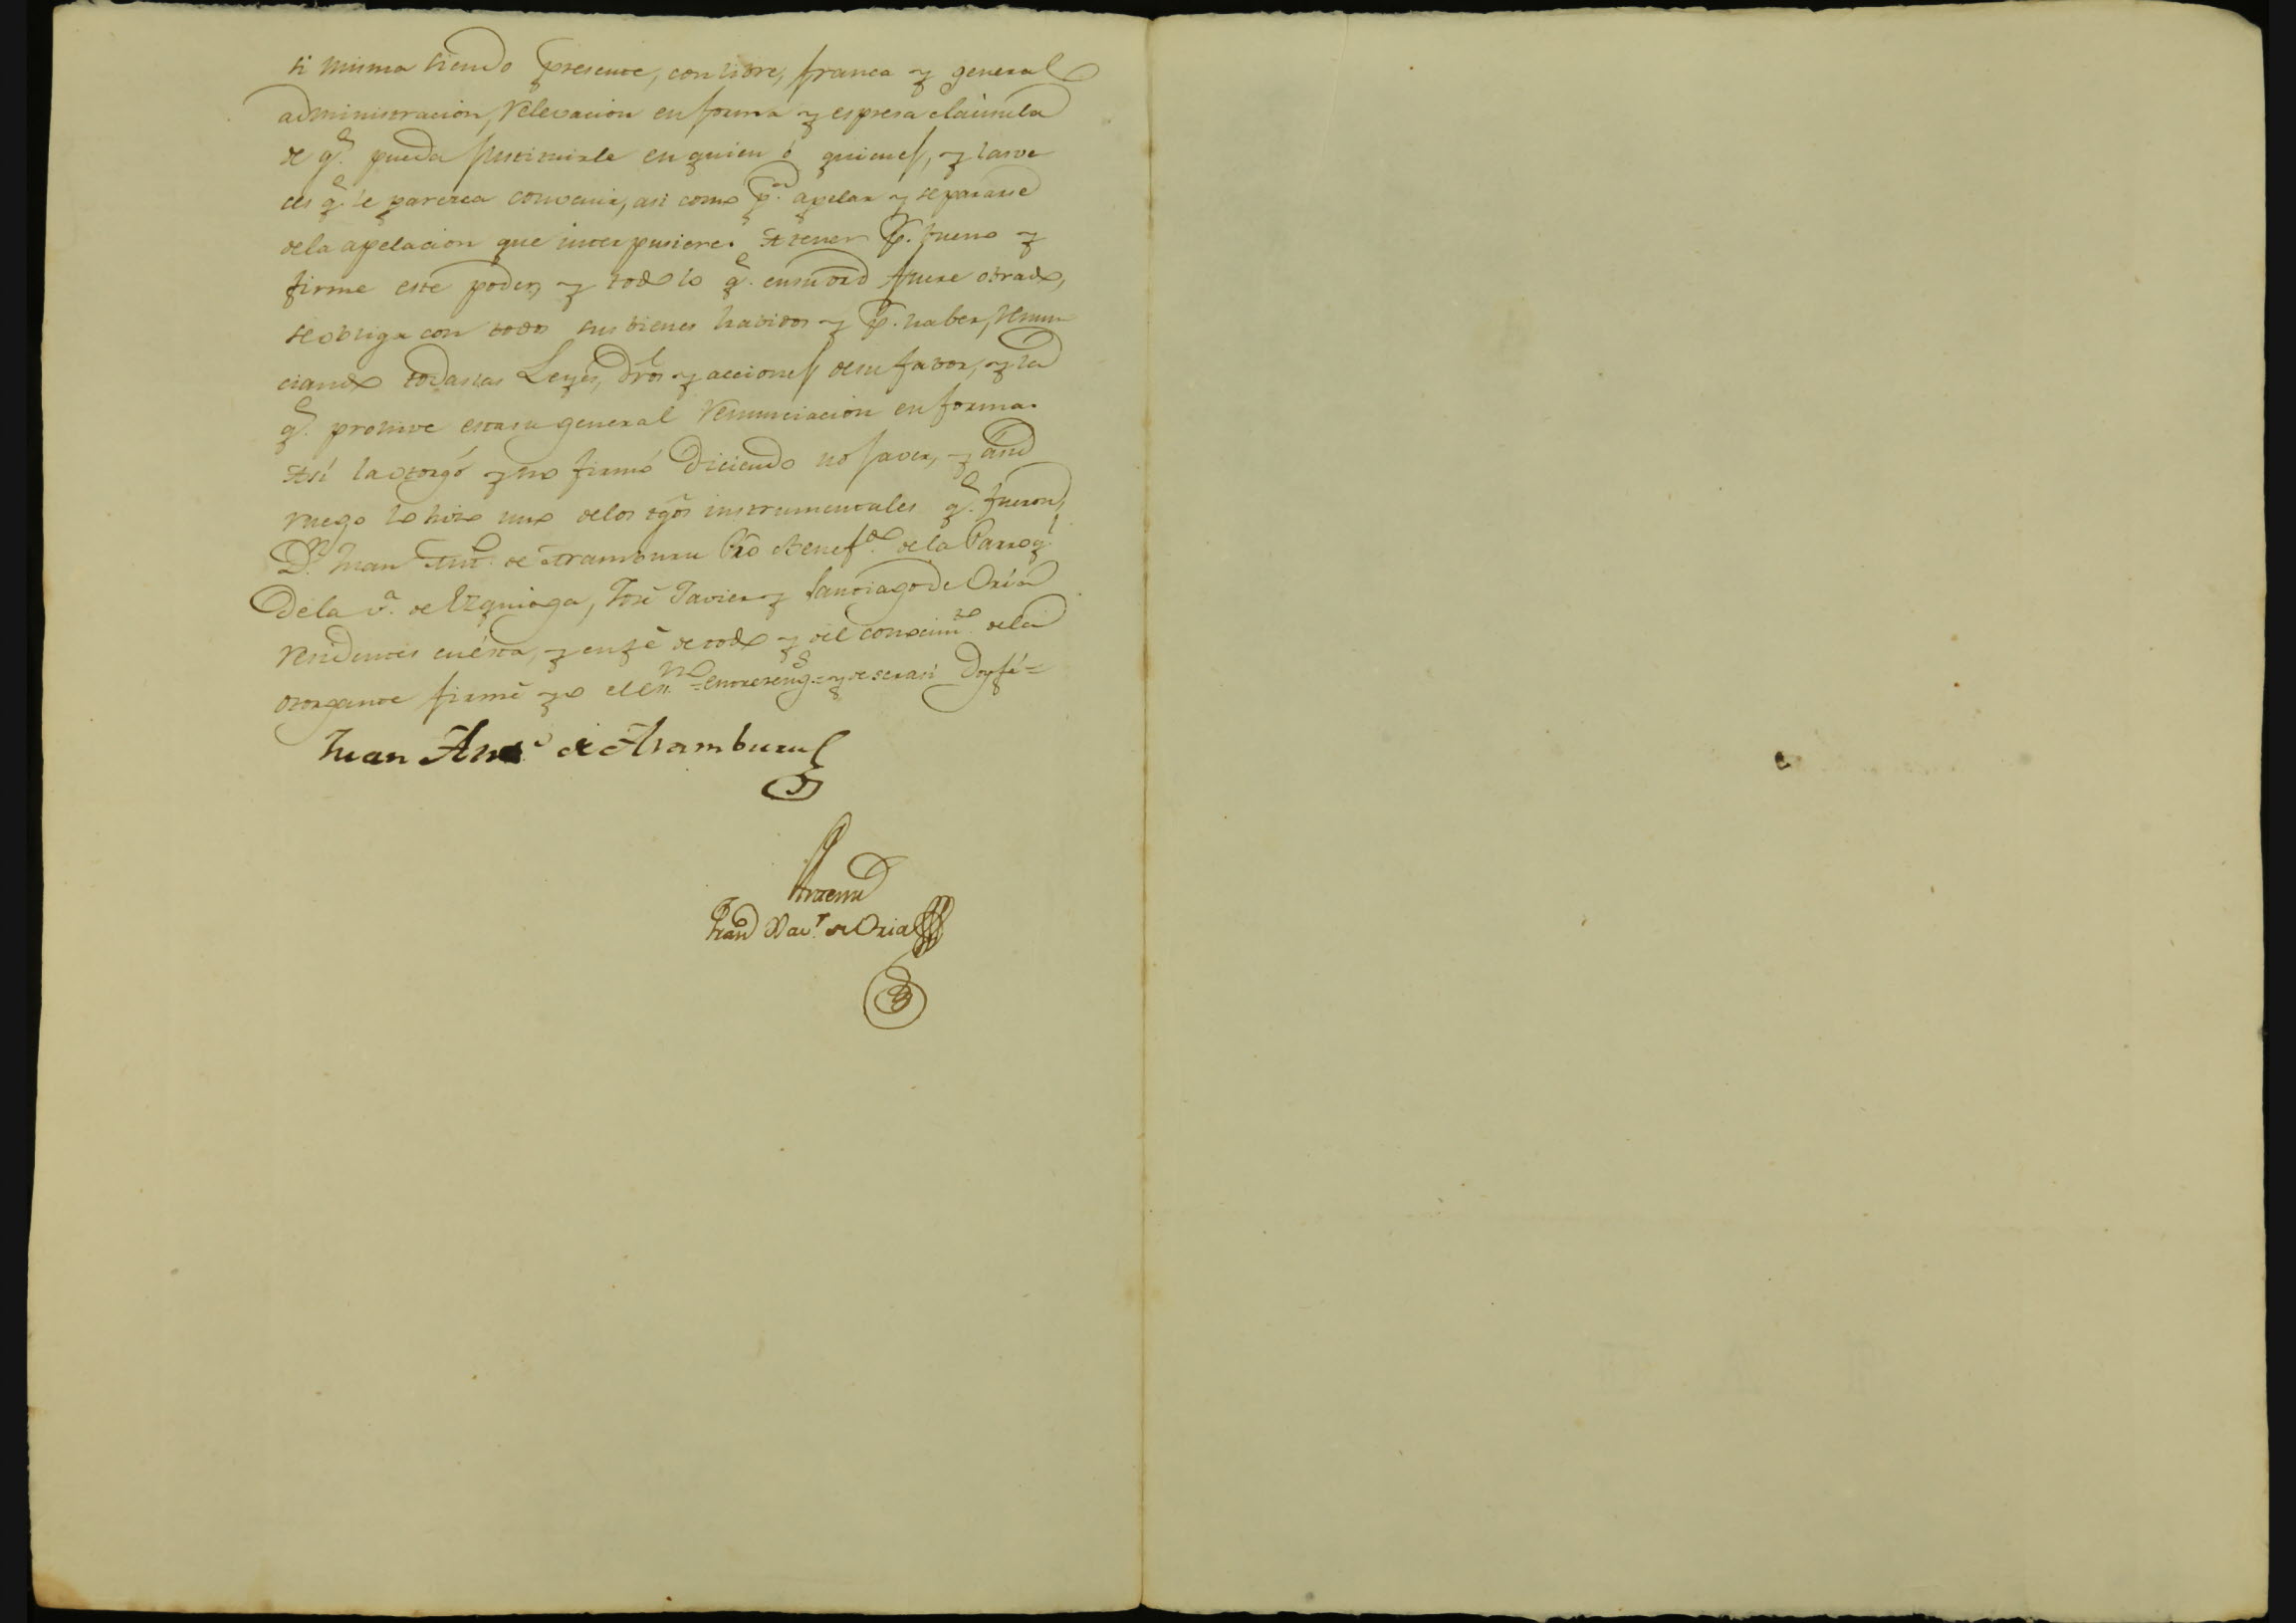 si misma siendo presente, con libre, franca y general
administracion, relevacion en forma y espresa clausula
de q.e pueda sustituirle en quien ó quienes, y las ve
ces q.e le parezca convenir, asi como p.a apelar y separarse
dela apelacion que interpusiere. A tener p.r bueno y
firme este poder, y todo lo q.e en su vrd fuere obrado,
se obliga con todos sus bienes habidos y p.r haber, renun
ciando todas las Leyes, dros y acciones de su favor, y la
q.e prohive esta su general renunciacion en forma.
Así la otorgó y no firmó diciendo no saver, y a su
ruego lo hizo uno delos tgos instrumentales q.e fueron,
D.n Juan Ant.o de Aramburu Pro Benef.do de la Parroq.l
De la v.a de Ezquioga, José Javier y Santiago de Oria
residentes en ésta, y en fé de todo y del conocim.to dela
otorgante firmé yo el Es.no = entrereng.s = y de ser asi Doy fé =
Juan Ant.o de Aramburu
Ante mi
Fran.co Xav.r de Oria